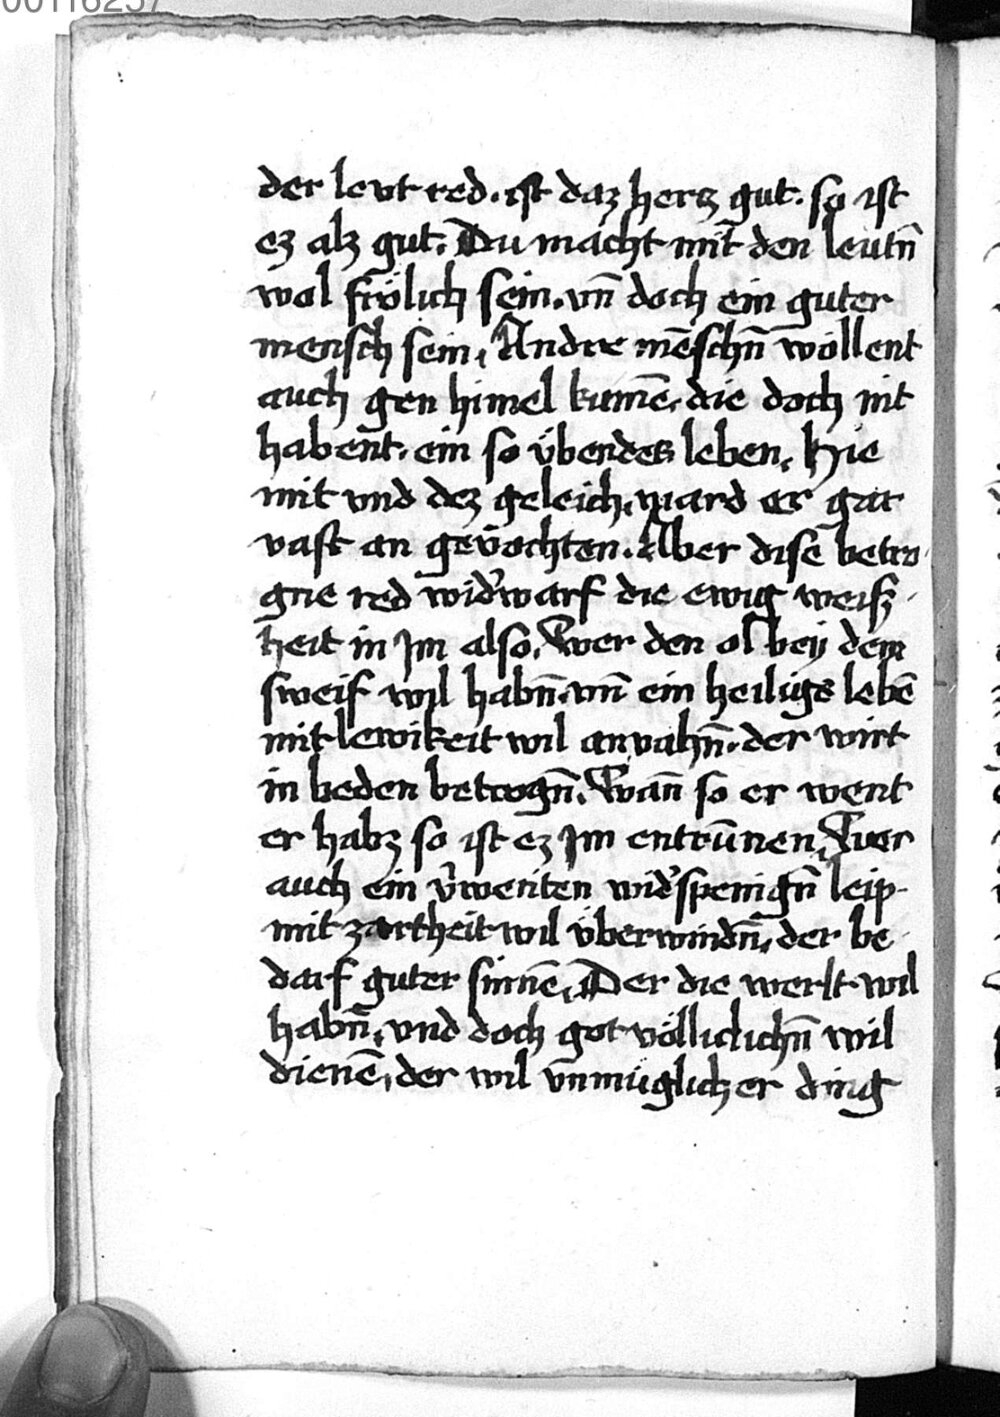 00116237
der levt red. ist daz hercz gut. so ist
ez alz gut. Du macht mit den leutn̄
wol frölich sein. vn̄ doch ein guter
mensch sein. Andre mēschn̄ wöllent
auch gen himel kumē. die doch nit
habent. ein so übendes leben. Hie
mit vnd dez geleich. ward er gar
vast an gevochten. Aber dise betro
gne red wid'warf die ewig weisz
heit in Im also. Wer den ol bey dem
sweif wil habn̄. vn̄ ein heiligs lebē
mit lewikeit wil anvahn̄. der wirt
in beden betrogn̄. Wān so er went
er habz so ist ez Im entrūnen. Wer
auch ein v'wenten wid'spenign̄ leip
mit zartheit wil überwindn̄. der be
darf guter sinnē. Der die werlt wil
habn̄. vnd doch got völliclichn̄ wil
dienē. der wil vnmüglicher ding